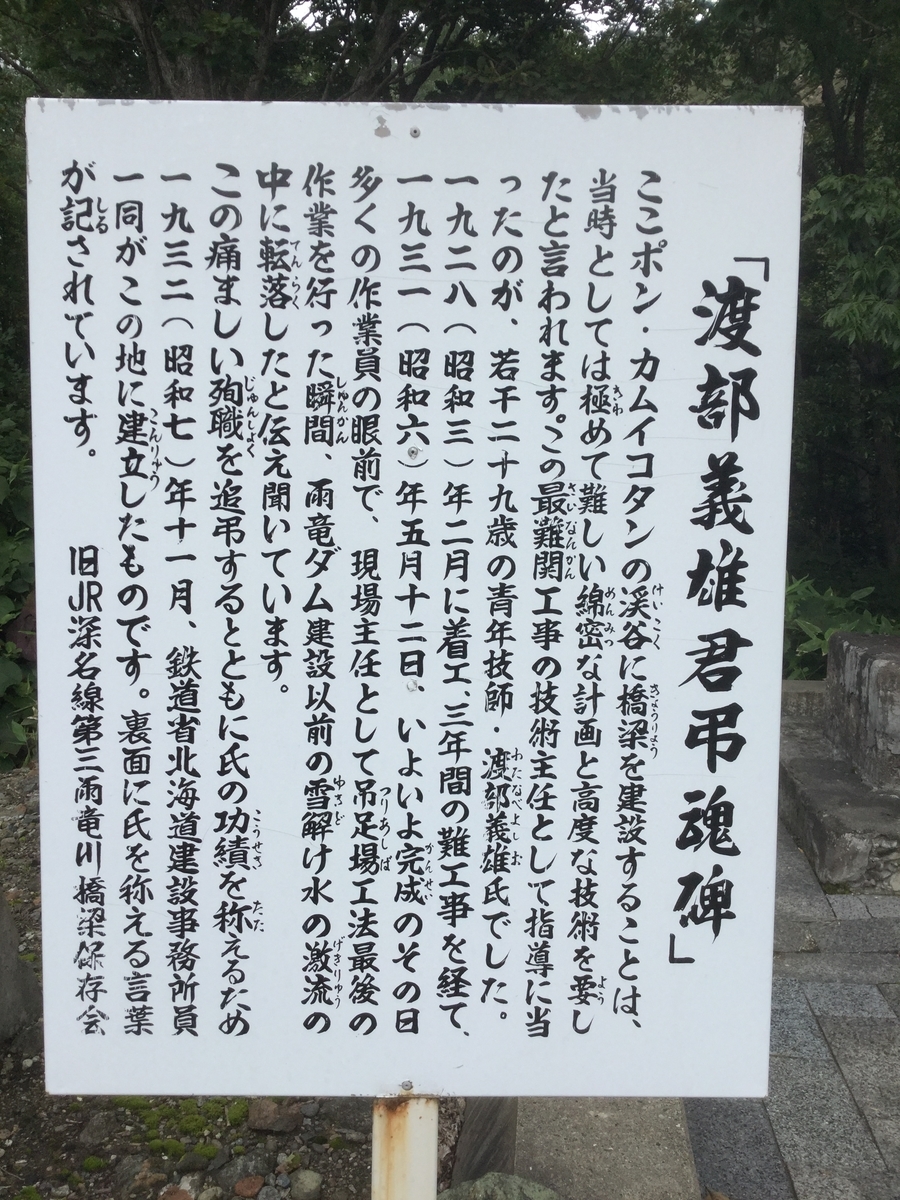 「渡部義雄君弔魂碑」
ここポン・カムイコタンの渓谷に橋梁を建設することは、
当時としては極めて難しい綿密な計画と高度な技術を要し
たと言われます。この最難関工事の技術主任として指導に当
ったのが、若干二十九歳の青年技師・渡部義雄氏でした。
一九二八(昭和三)年二月に着工、三年間の難工事を経て、
一九三一(昭和六)年五月十二日、いよいよ完成のその日
多くの作業員の眼前で、現場主任として吊足場工法最後の
作業を行った瞬間、雨竜ダム建設以前の雪解け水の激流の
中に転落したと伝え聞いています。
この痛ましい殉職を追弔するとともに氏の功績を称えるため
一九三二(昭和七)年十一月、鉄道省北海道建設事務所員
一同がこの地に建立したものです。裏面に氏を称える言葉
が記されています。
旧JR深名線第三雨竜川橋梁保存会